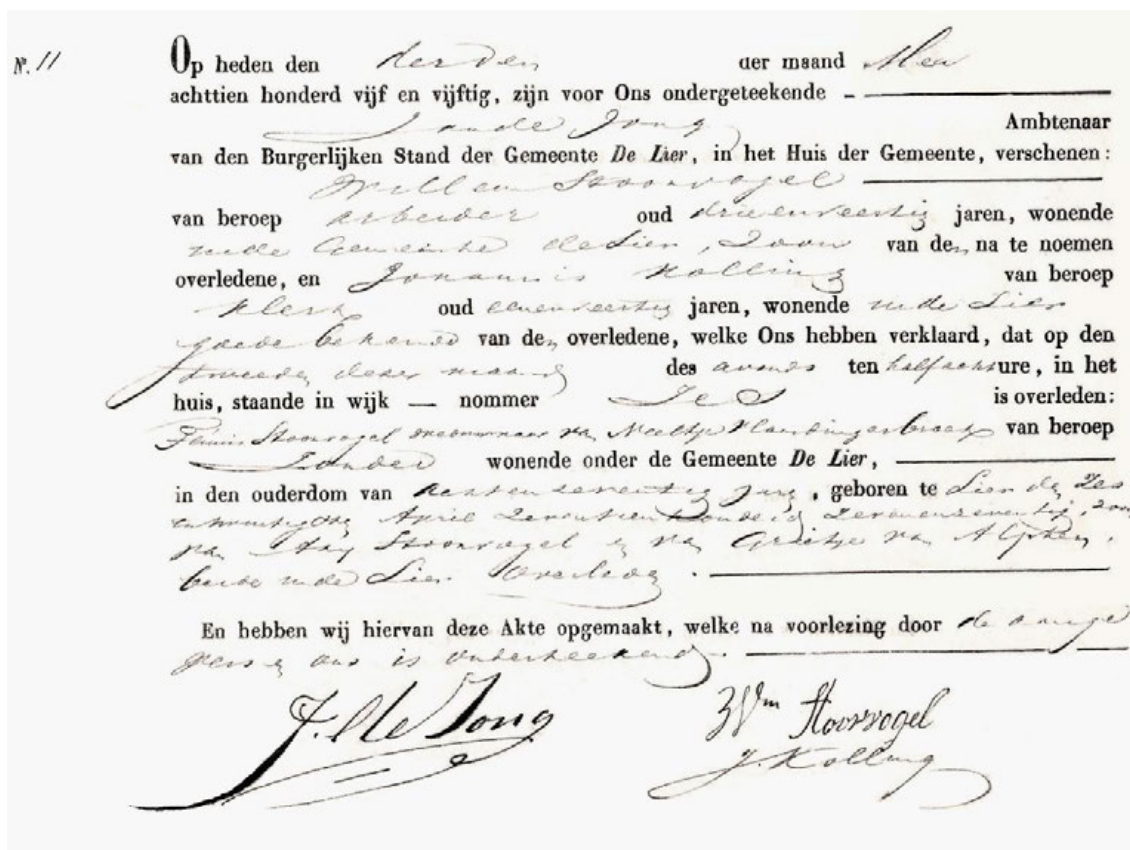 Nº. 11
Op heden den derden der maand Mei
achttien honderd vijf en vijftig, zijn voor Ons ondergeteekende
J de Jong Ambtenaar
van den Burgerlijken Stand der Gemeente De Lier, in het Huis der Gemeente, verschenen:
Willem Stoorvogel
van beroep arbeider oud drieenveertig jaren, wonende
in de Gemeente de Lier, Zoon van den na te noemen
overledene, en Johannis Kolling van beroep
klerk oud eenenveertig jaren, wonende in de Lier
goede bekende van den overledene, welke Ons hebben verklaard, dat op den
tweeden dezer maand des avonds ten half acht ure, in het
huis, staande in wijk — nommer Zes is overleden:
Stoorvogel weduwnaar van Neeltje Vlaardingerbroek van beroep
Zonder wonende onder de Gemeente De Lier,
in den ouderdom van achtenzeventig jaren, geboren te Lier den Zes
entwintigsten April Zeventienhonderd Zevenenzeventig, zoon
van Arij Stoorvogel en van Grietje van Alphen,
beide in de Lier Overleden.
En hebben wij hiervan deze Akte opgemaakt, welke na voorlezing door de aange
vers en ons is onderteekend.
J. de Jong Wm Stoorvogel
J. Kolling